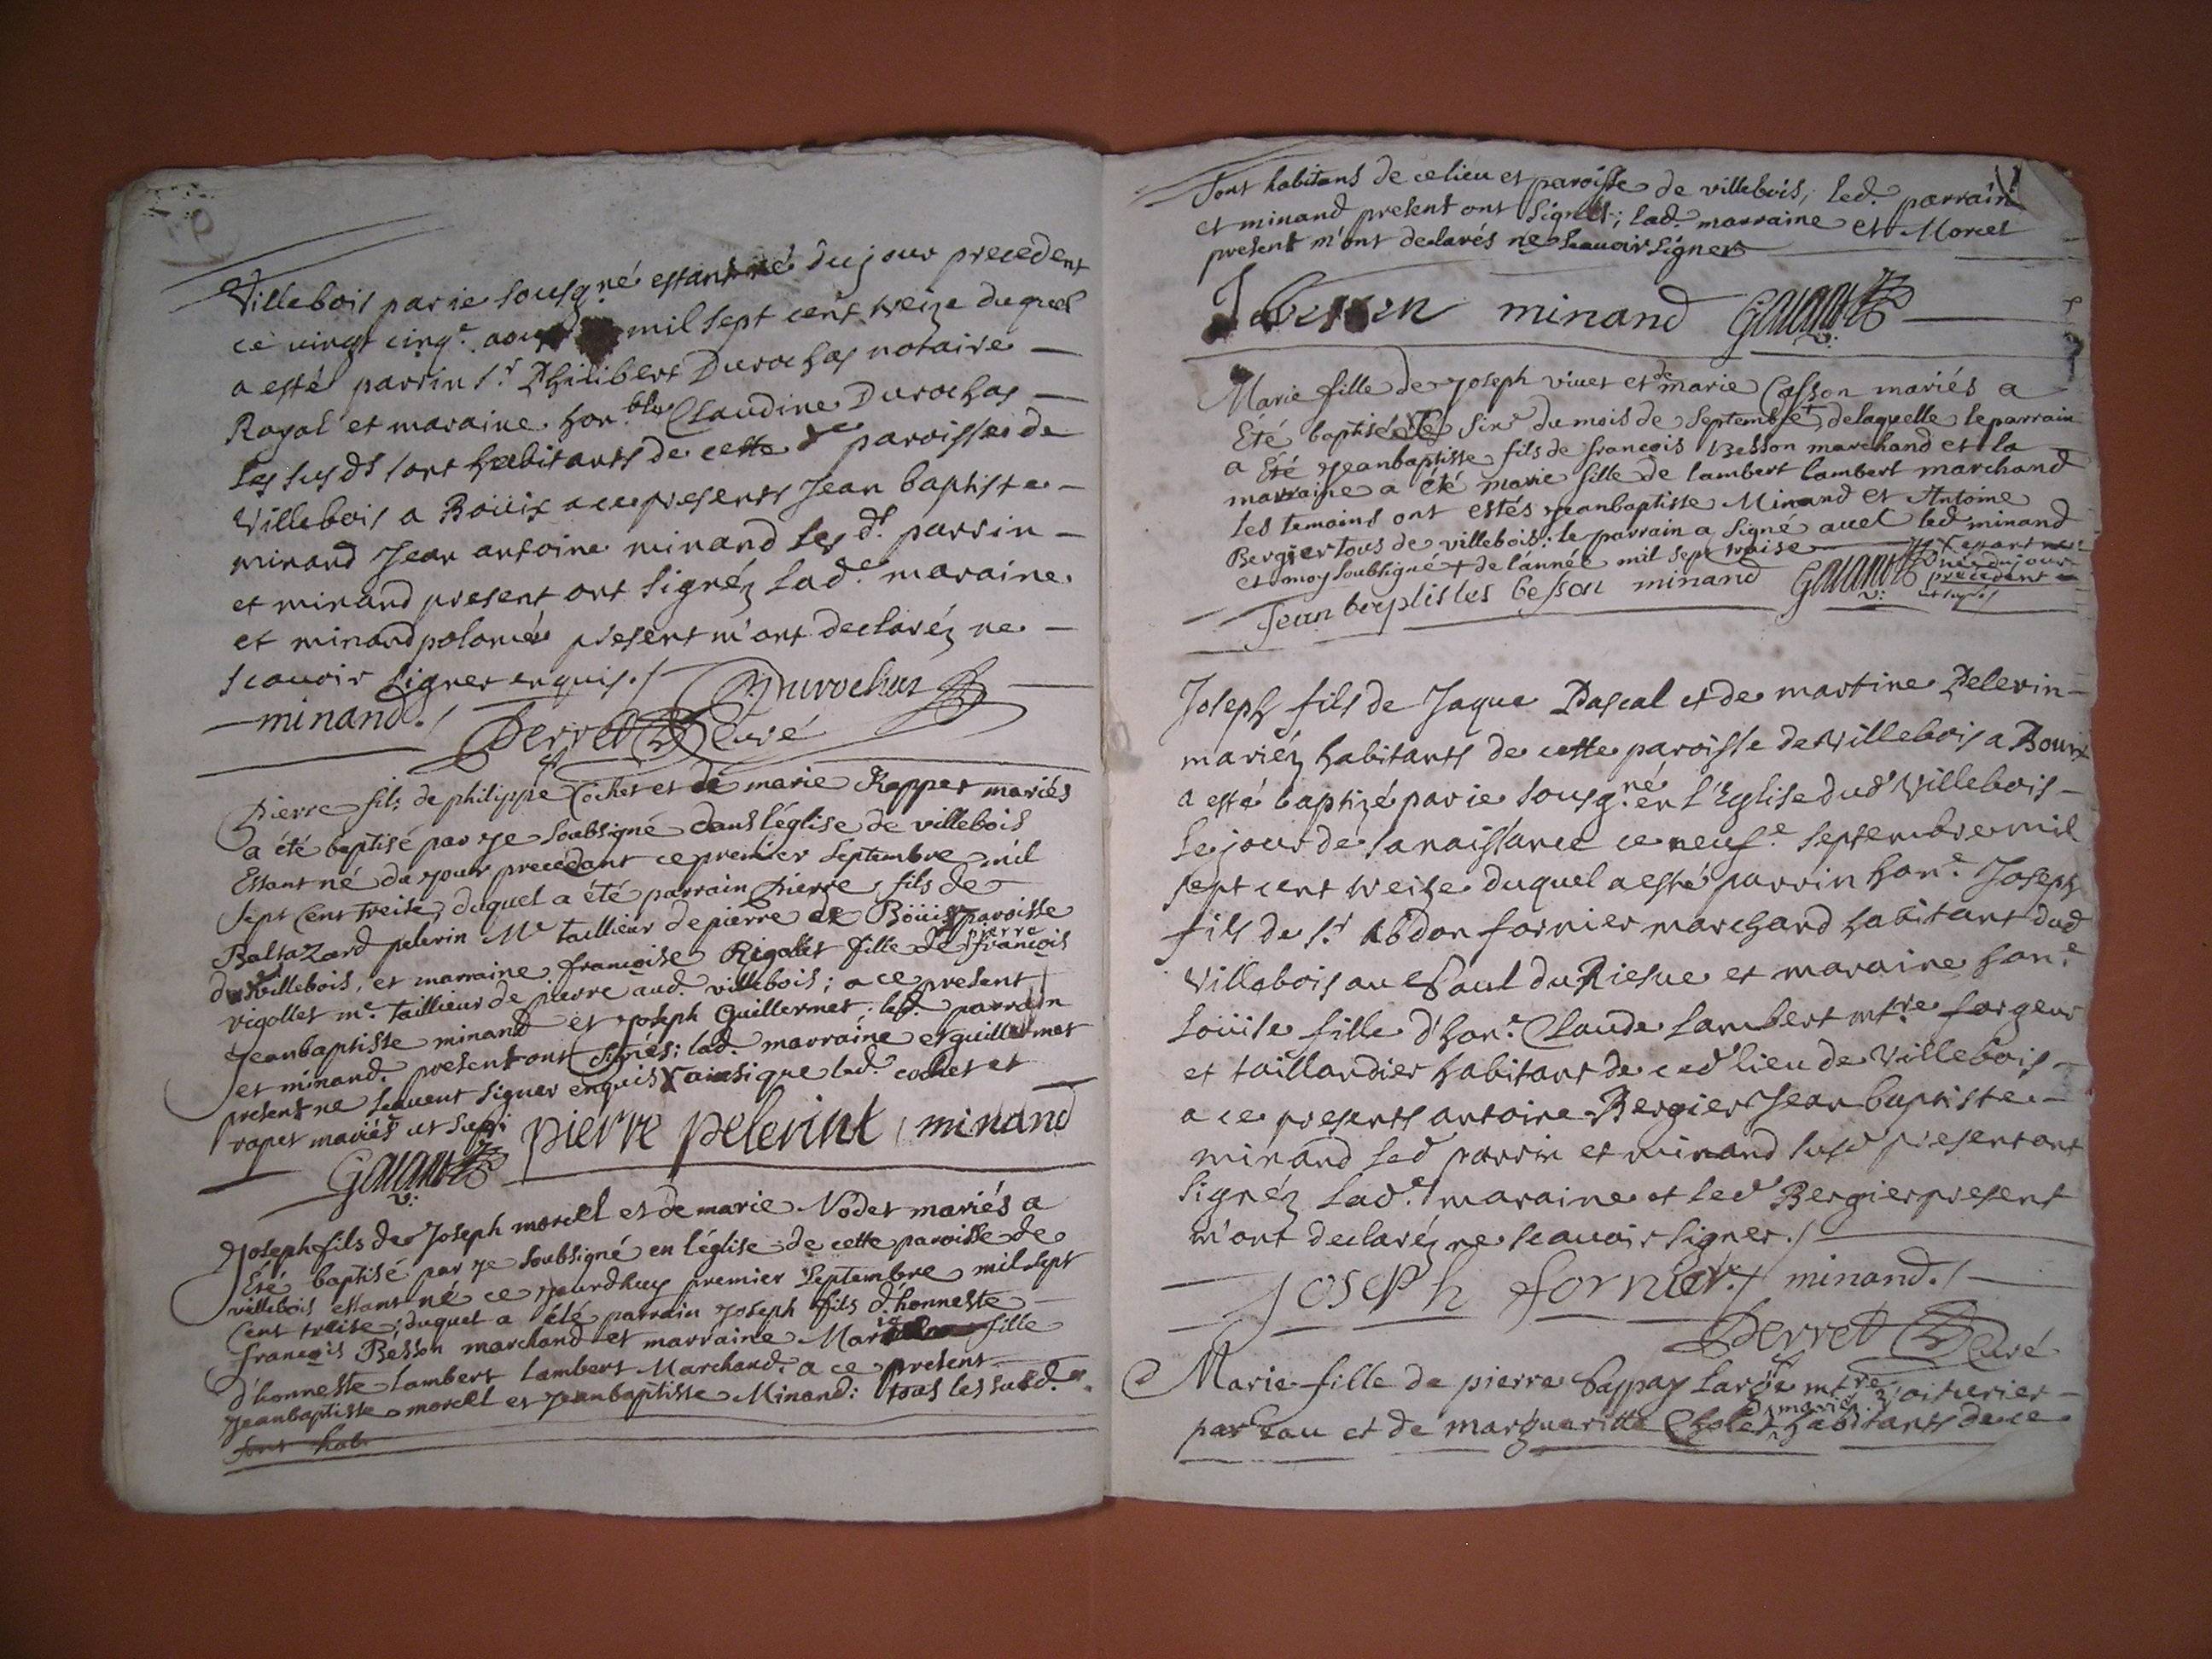 Villebois par ie sousg.né estant né du jour precedent
ce vingt cinq.e aoust mil sept cent treize duquel
a esté parrin s.r Philibert Durochas notaire
Royal et maraine hon.ble Claudine Durochas
les susd.s sont habitants de cette paroisse de
Villebois a Boüix a ce presents Jean baptiste
minand Jean antoine minand les d.s parrin
et minand present ont signéz lad.e maraine
et minand present m'ont declaréz ne
scauoir signer enquis ./. Durochas
minand ./. Perret Curé
Pierre fils de philippe Cochet et de marie Rappet mariés
a été baptisé par je soubsigné dans l'église de villebois
Estant né du jour precedant ce premier septembre mil
sept cent treise, duquel a été parrain Pierre fils de
Baltazard pelerin M.e taillieur de pierre de Boüis paroisse
dud villebois, et marraine francoise Rigollet fille de pierre francois
rigollet m.e taillieur de pierre aud. villebois; a ce present
Jeanbaptiste minand et joseph Guillermet; led. parrain
et minand present ont signés; lad. marraine et guillermet
present ne scauent signer enquis ainsi que led. cochet et
rapet mariés ut supr
Gauant v: pierre pelerint minand
Joseph fils de Joseph morell et de marie Nodet mariés a
Été baptisé par je soubsigné en l'église de cette paroisse de
villebois estant né ce jourdhuy premier septembre mil sept
cent treise; duquel a été parrain joseph fils d'honneste
francois Besson marchand et marraine Marie fille
d'honneste lambert lambert Marchand. a ce present
Jeanbaptiste morell et jeanbaptiste Minand: tous les susd.
sont hab
sont habitans de ce lieu et paroisse de villebois, led. parrain
et minand present ont signés; lad. marraine et Morel
present m'ont declarés ne scauoir signer
J besson minand Gauant v:
Marie fille de joseph viuet et de marie Casson mariés a
Été baptisée le six.e du mois de septembre + delaquelle le parrain
a été jeanbaptiste fils de francois Besson marchand et la
marraine a été marie fille de lambert lambert marchand
les temoins ont estés jeanbaptiste Minand et Antoine
Bergier tous de villebois; le parrain a signé auec led minand
et moy soubsigné + de l'année mil sept traise
x estant née du jour precedent ut supr./.
Jean baptistes besson minand Gauant v:
Joseph fils de Jaque Pascal et de martine Pelerin
mariéz habitants de cette paroisse de Villebois a Bouix
a esté baptizé par ie sousg.né en l'Eglise dud Villebois
le jour de sa naissance ce neuf.e septembre mil
sept cent treize duquel a esté parrin hon.e Joseph
fils de s.r Abdon fornier marchand habitant dud
Villebois au Saul du Riesue et maraine hon.e
Loüise fille d'hon.e Claude Lambert mtre forgeur
et taillandier habitant de ced lieu de Villebois
a ce presents antoine Bergier Jean baptiste
minand led parrin et minand susd present ont
signéz lad.e maraine et led Bergier present
m'ont declaréz ne scauoir signer ./.
Joseph fornier ./. minand ./.
Perret Curé
Marie fille de pierre Pappay Large mtre voiturier
par eau et de margueritte Cholet mariéz habitants de ce